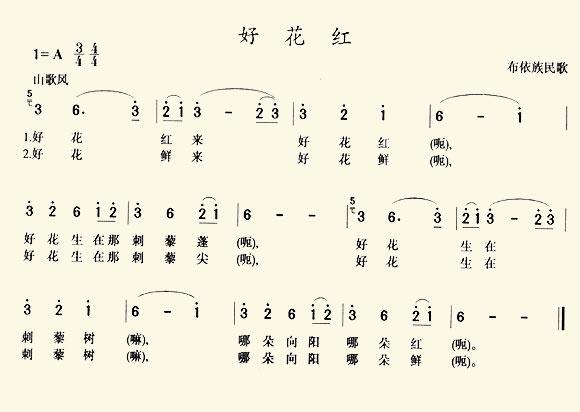 好 花 红
1=A 3/4 4/4
布依族民歌
山歌风
5 3 6. 3 | 2 1 3 - 2 3 | 3 2 1 | 6 - 1 |
1.好 花 红 来 好 花 红 (呃),
2.好 花 鲜 来 好 花 鲜 (呃),
3 2 6 1 2 | 3 6 2 1 | 6 - - | 5 3 6. 3 | 2 1 3 - 2 3 |
好 花 生 在 那 刺 藜 蓬 (呃), 好 花 生 在
好 花 生 在 那 刺 藜 尖 (呃), 好 花 生 在
3 2 1 | 6 - 1 | 3 2 6 1 2 | 3 6 2 1 | 6 - - ‖
刺 藜 树 (嘛), 哪 朵 向 阳 哪 朵 红 (呃)。
刺 藜 树 (嘛), 哪 朵 向 阳 哪 朵 鲜 (呃)。